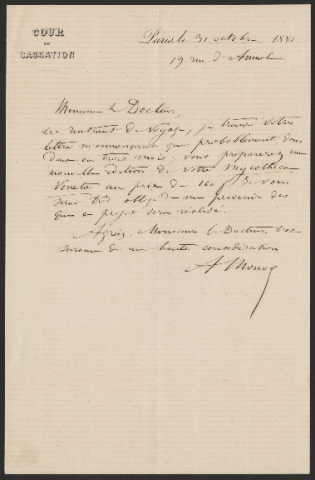 COUR
DE
CASSATION
Paris, le 31 octobre 1881
19 rue d'Aumale
Monsieur le Docteur,
En rentrant de voyage, je trouve votre
lettre m'annonçant que probablement, dans
deux ou trois mois, vous préparerez une
nouvelle édition de votre Mycotheca
Veneta au prix de 160 f. Je vous
serai très obligé de me prévenir dès
que ce projet sera réalisé.
Agréez, Monsieur le Docteur, l'as-
surance de ma haute considération
A Monod